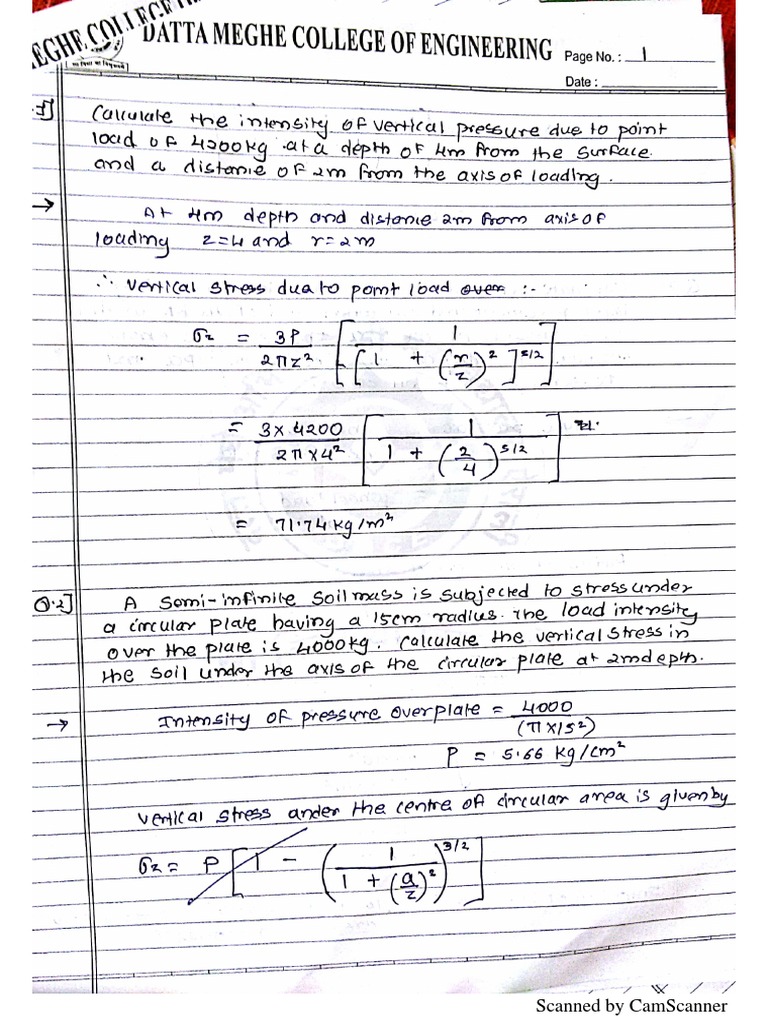 MEGHE COLLEGE
DATTA MEGHE COLLEGE OF ENGINEERING
Page No. : 1
Date :
Calculate the intensity of vertical pressure due to point
load of 4200kg at a depth of 4m from the surface
and a distance of 2m from the axis of loading.
→ At 4m depth and distance 2m from axis of
loading z=4 and r=2m
∴ vertical stress due to point load over :-
σz = 3P / 2πz² [ 1 / [1 + (r/z)²]^5/2 ]
= 3×4200 / 2π×4² [ 1 / 1 + (2/4)^5/2 ]
= 71.74 kg/m²
Q.2] A semi-infinite soil mass is subjected to stress under
a circular plate having a 15cm radius. The load intensity
over the plate is 4000kg. Calculate the vertical stress in
the soil under the axis of the circular plate at 2m depth.
→ Intensity of pressure over plate = 4000 / (π×15²)
P = 5.66 kg/cm²
vertical stress under the centre of circular area is given by
σz = P [ 1 - ( 1 / 1 + (a/z)² )^3/2 ]
Scanned by CamScanner